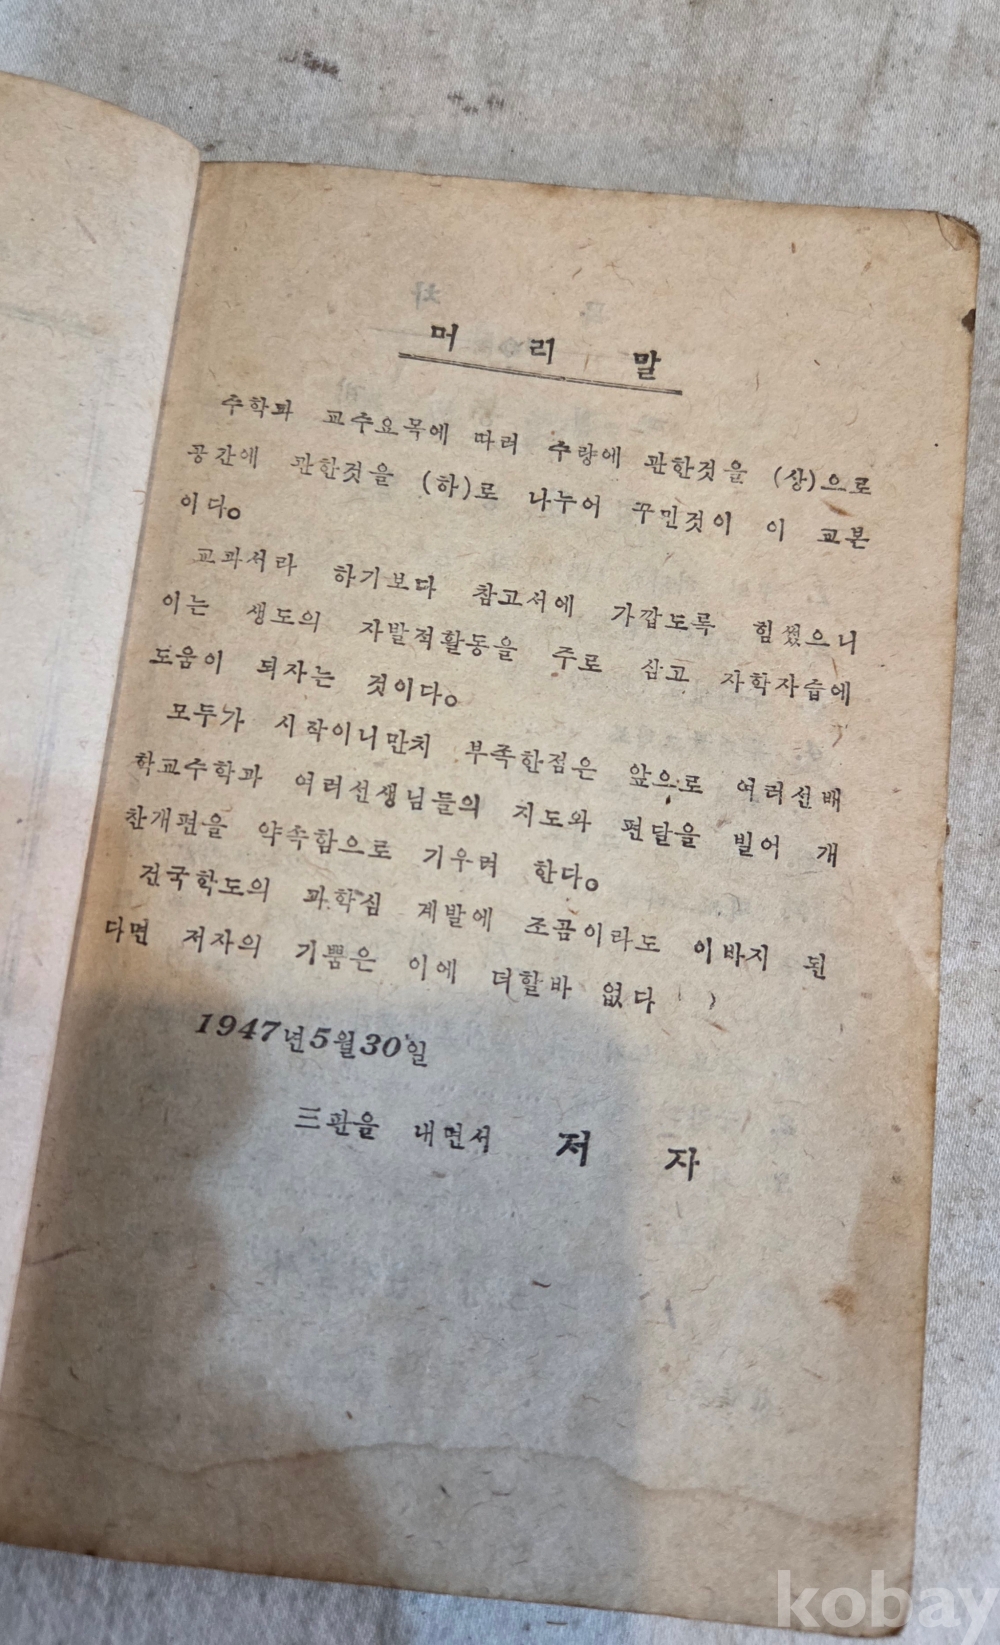 머리말
수학과 교수요목에 따러 수량에 관한것을 (상)으로
공간에 관한것을 (하)로 나누어 꾸민것이 이 교본
이다。
교과서라 하기보다 참고서에 가깝도록 힘썼으니
이는 생도의 자발적활동을 주로 삼고 자학자습에
도움이 되자는 것이다。
모두가 시작이니만치 부족한점은 앞으로 여러선배
학교수학과 여러선생님들의 지도와 편달을 빌어 개
찬개편을 약속함으로 기우려 한다。
건국학도의 과학심 계발에 조곰이라도 이바지 된
다면 저자의 기쁨은 이에 더할바 없다
1947년5월30일
三관을 내면서 저 자
kobay